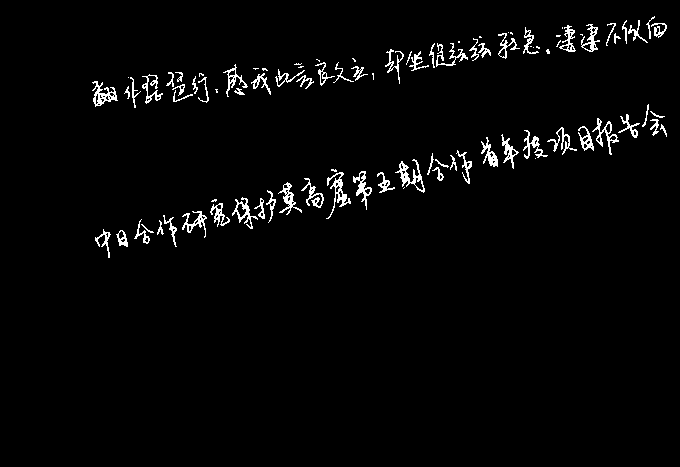 翻作琵琶行。感我此言良久立,却坐促弦弦转急。凄凄不似向
中日合作研究保护莫高窟第五期合作首年度项目报告会